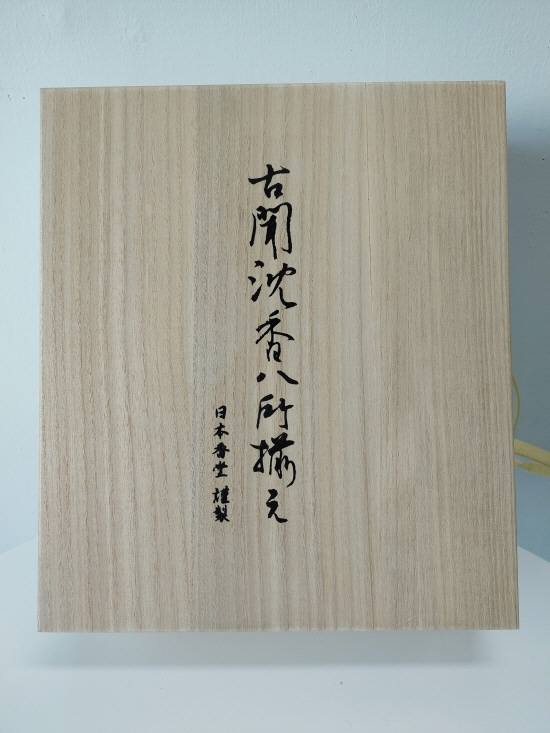 古聞沈香八所揃え
日本香堂 謹製